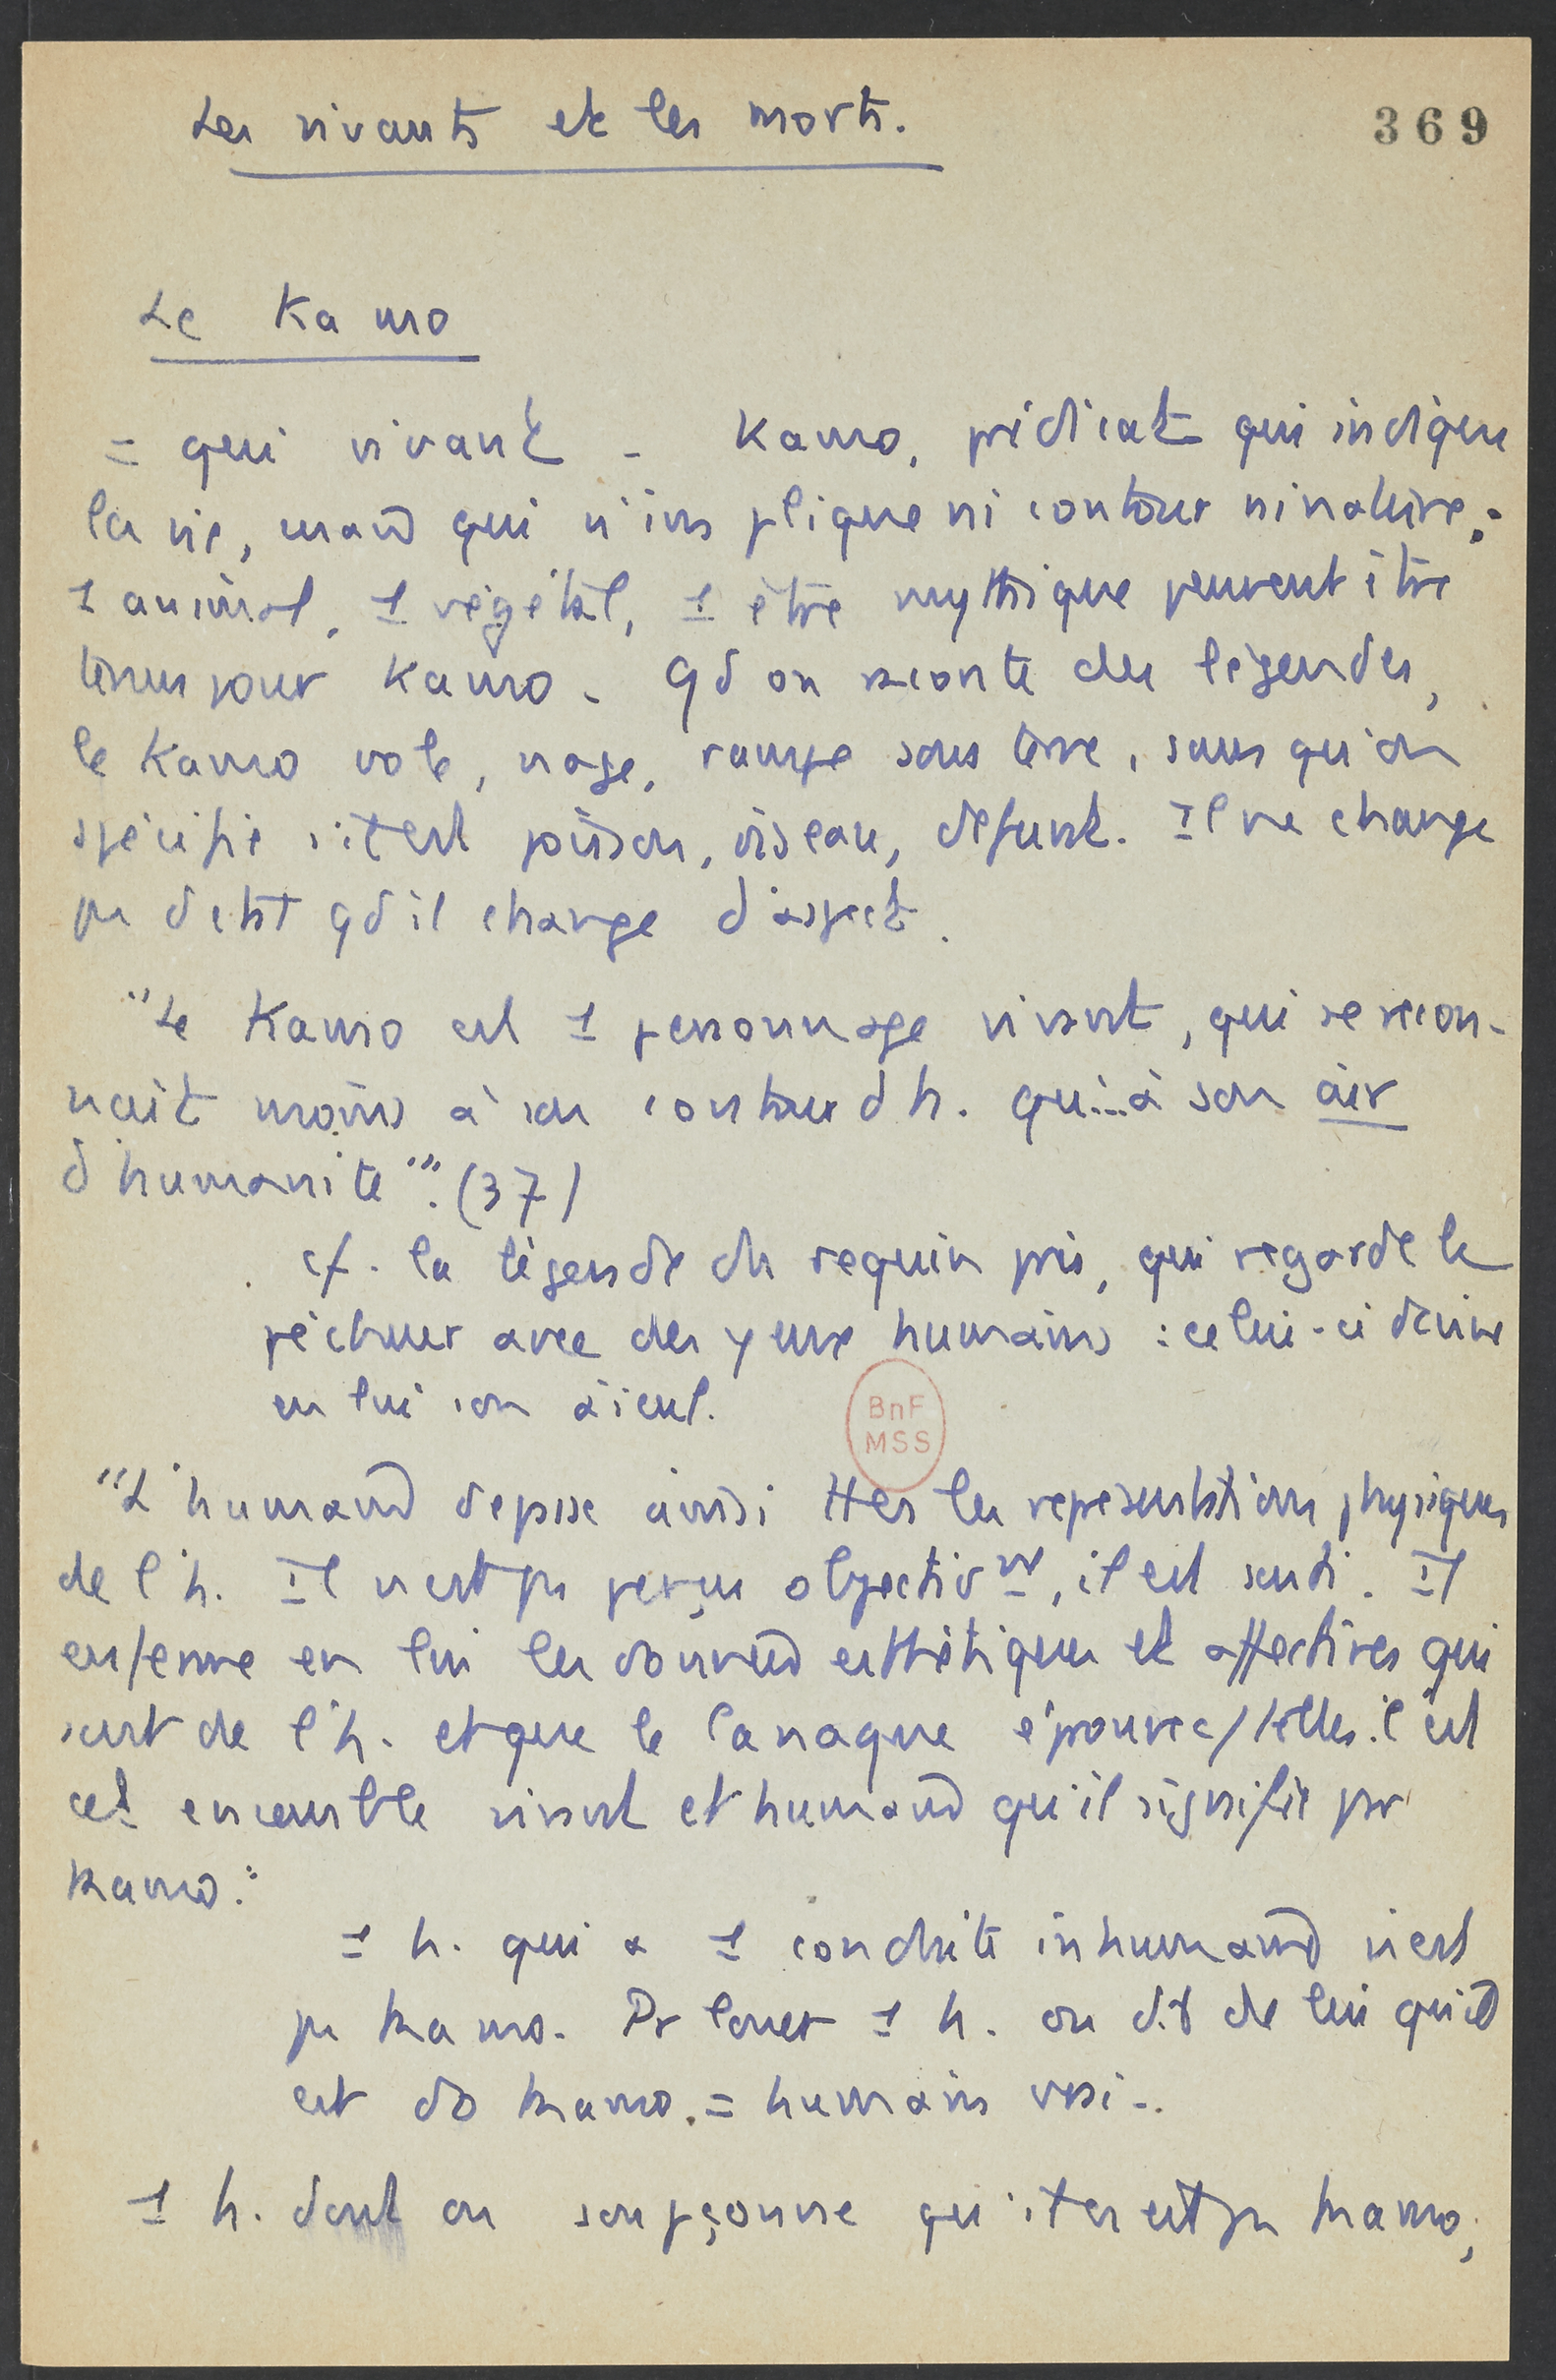 Les vivants et les morts.
369
Le Kamo
= qui vivant - Kamo, prédicat qui indique
la vie, mais qui n'implique ni contour ni nature :
1 animal, 1 végétal, 1 être mythique peuvent être
tenus pour Kamo. Qd on raconte des légendes,
le Kamo vole, nage, rampe sous terre, sans qu'on
spécifie s'il est poisson, oiseau, défunt. Il ne change
pas d'état qd il change d'aspect.
"Le Kamo est 1 personnage vivant, qui se recon-
nait moins à son contour d'h. qu'... à son air
d'humanité". (37)
cf. la légende du requin pris, qui regarde le
pêcheur avec des yeux humains : celui-ci devine
en lui son aïeul.
"L'humain dépasse ainsi ttes les représentations physiques
de l'h. Il n'est pas perçu objectivt, il est senti. Il
enferme en lui les données esthétiques et affectives qui
sont de l'h. et que le Canaque éprouve c/ telles. C'est
cet ensemble vivant et humain qu'il signifie par
Kamo."
1 h. qui a 1 conduite inhumaine n'est
pas Kamo. Pr louer 1 h. on dit de lui qu'il
est do Kamo. = humain vrai -.
1 h. dont on soupçonne qu'il n'est pas Kamo,
BnF
MSS